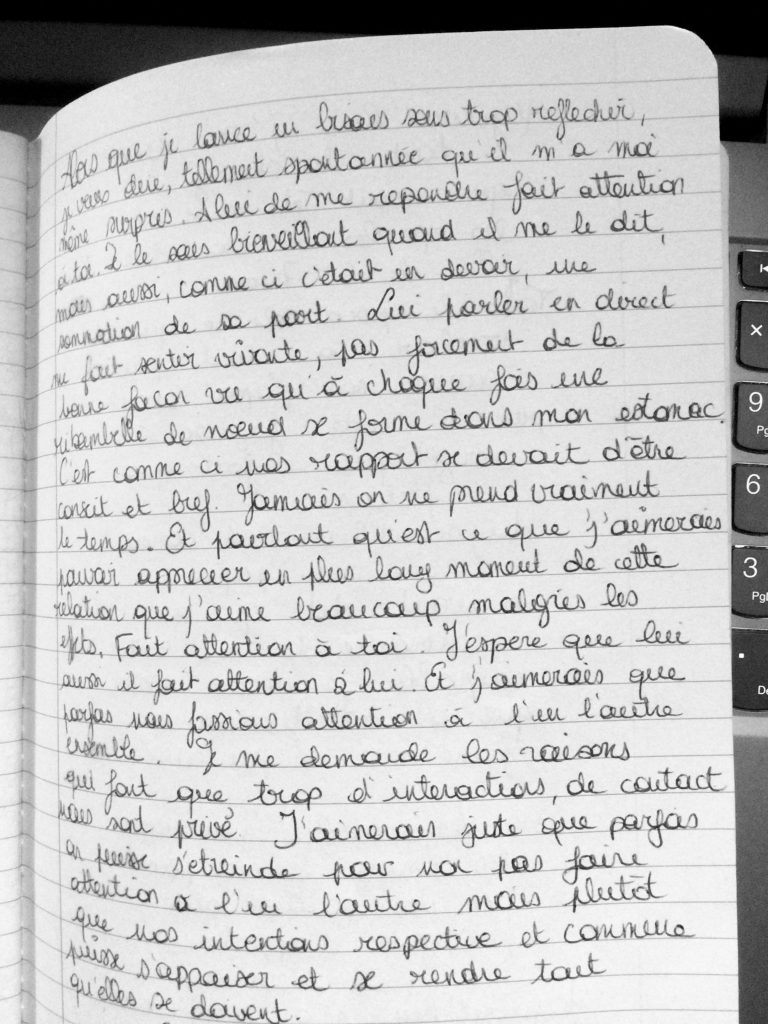 Alors que je lance un bisous sans trop reflechir,
je vous dire, tellement spontannée qu'il m'a moi
même surpris. A lui de me repondre fait attention
a toi. Je le sais bienveillant quand il me le dit,
mais aussi, comme ci c'était un devoir, une
sommation de sa part. Lui parler en direct
me fait sentir vivante, pas forcement de la
bonne facon vu qu'à chaque fois une
ribambelle de nœud se forme dans mon estomac.
C'est comme ci nos rapport se devait d'être
concit et bref. Jamais on ne prend vraiment
le temps. Et pourtout qu'est ce que j'aimerais
pouvoir apprecier un plus long moment de cette
relation que j'aime beaucoup malgres les
efcts. Fait attention à toi. J'espere que lui
aussi il fait attention à lui. Et j'aimerais que
parfois nous fassions attention à l'un l'autre
ensemble. Je me demande les raisons
qui font que trop d'interactions, de contact
nous sont privé. J'aimerais juste que parfois
on puisse s'etreinde pour non pas faire
attention a l'un l'autre mais plutôt
que nos intentions respective et commune
puisse s'appaiser et se rendre tout
qu'elles se doivent.
×
9
Pg
6
3
Pgl
.
De